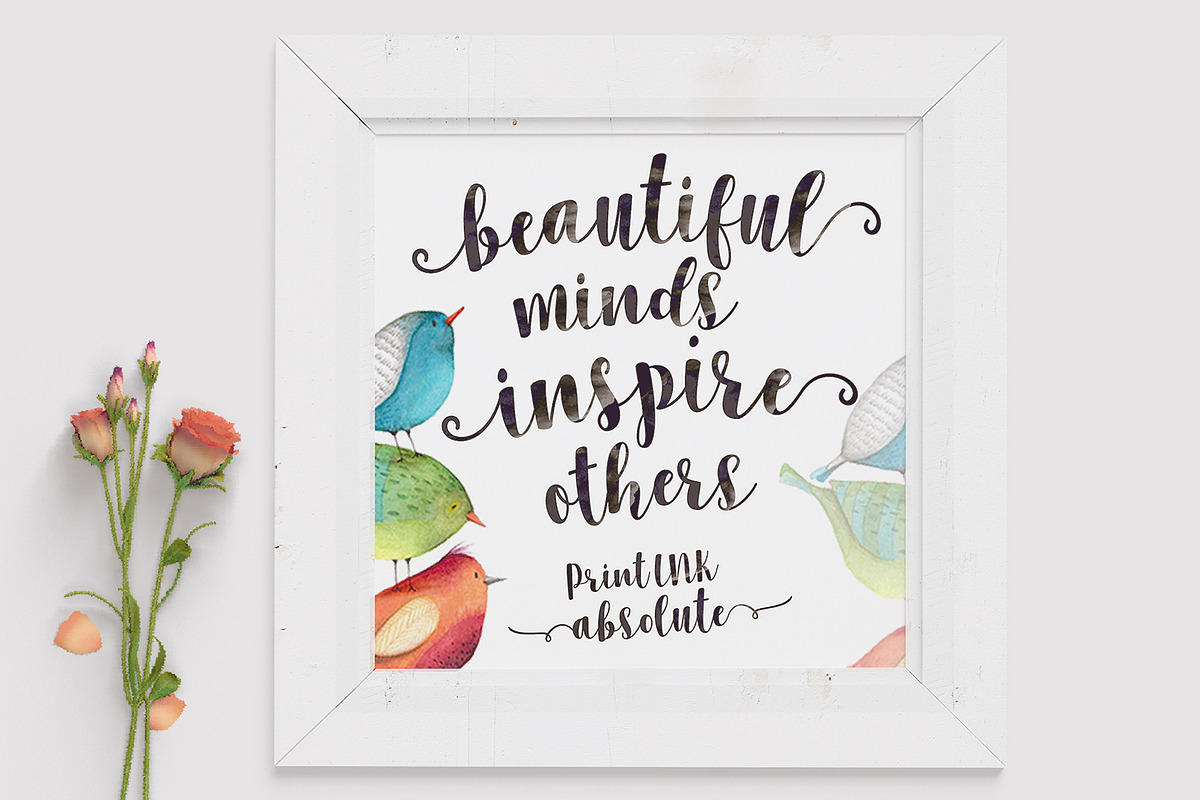 beautiful
minds
inspire
others
Print INK
absolute